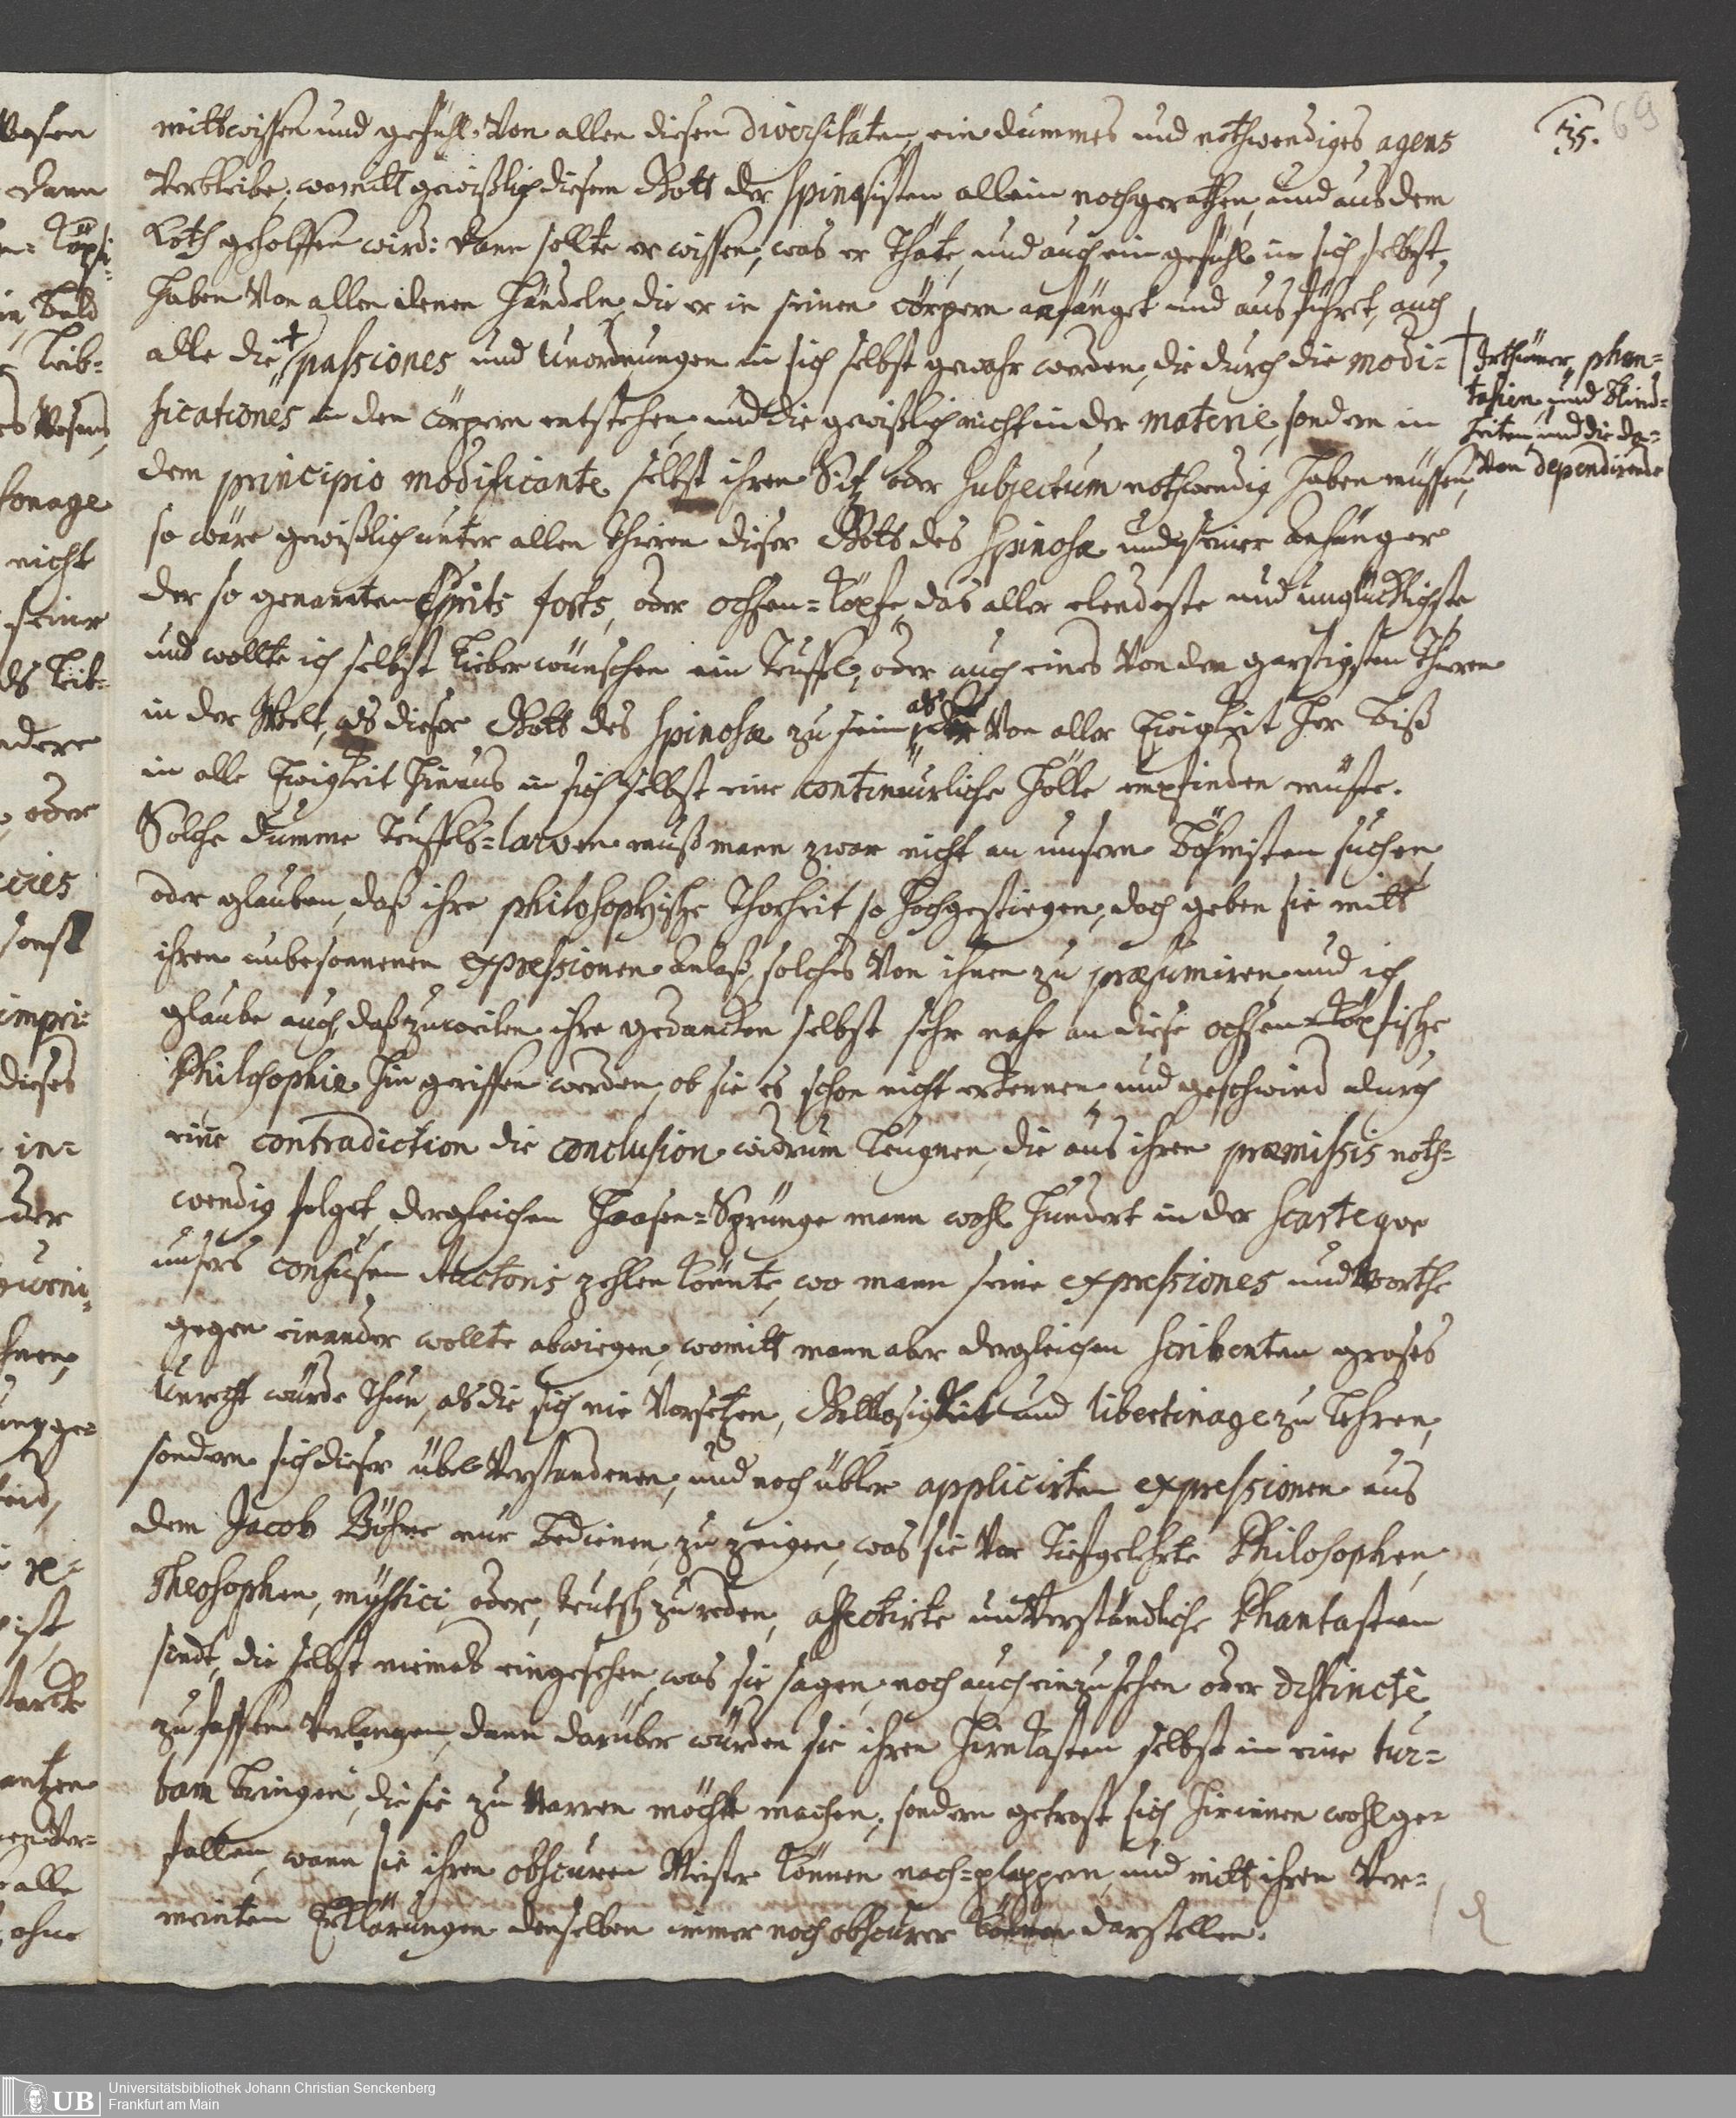 35. 69
mittwissen und gefühl von allen diesen diversitäten, ein dummes und nothwendiges agens
verbleibe, womitt gewißlich diesem Gott der spinosisten allein noch gerathen, und aus dem
Koth geholffen wird: dann sollte er wissen, was er thäte, und auch ein gefühl in sich selbst,
haben von allen denen händeln, die er in seinen cörpern anfänget und ausführet, auch
alle die † passiones und unordnungen in sich selbst gewahr werden, die durch die modi=
† Irthümer, phan=
tasien, und blind=
heiten, und die da=
von dependirende
ficationes in den cörpern entstehen, und die gewißlich nicht in der materie, sondern in
dem principio modificante selbst ihren Sitz oder subjectum nothwendig haben müssen,
so wäre gewißlich unter allen thieren dieser Gott des Spinosæ und seiner anhänger
der so genannten Esprits forts, oder ochsen=köpfe, das aller elendeste und unglücklichste
und wollte ich selbst lieber wünschen ein teuffel, oder auch eines von den garstigsten thieren
in der Welt, als dieser Gott des Spinosæ zu sein, als der von aller Ewigkeit her biß
in alle Ewigkeit hinaus in sich selbst eine continuirliche hölle empfinden müste.
Solche dumme teuffels=larven muß mann zwar nicht an unsern Böhmisten suchen,
oder glauben, daß ihre philosophische thorheit so hoch gestiegen, doch geben sie mitt
ihren unbesonnenen expressionen anlaß, solches von ihnen zu præsumiren, und ich
glaube auch, daß zuweilen ihre gedancken selbst sehr nahe an diese ochsen=köpfische
Philosophie hingerissen werden, ob sie es schon nicht erkennen, und geschwind durch
eine contradiction die conclusion widrum leugnen, die aus ihren præmissis noth=
wendig folget, dergleichen haasen=Sprünge mann wohl hundert in der scarteque
unsers confusen Autoris zehlen könnte, wo mann seine expressiones und worthe
gegen einander wollte abwiegen, womitt mann aber dergleichen scribenten großes
Unrecht würde thun, als die sich nie vorsetzen, Gottlosigkeit und libertinage zu lehren,
sondern sich dieser übel verstandenen, und noch übler applicirten expressionen aus
dem Jacob Böhme nur bedienen, zu zeigen, was sie vor tiefgelehrte Philosophen,
Theosophen, mystici, oder, teutsch zu reden, affectirte unverständliche Phantasten
sindt, die selbst niemals eingesehen, was sie sagen, noch auch einzusehen oder distinctè
zu fassen verlangen, dann darüber würden sie ihren hirnkasten selbst in eine tur=
bam bringen, die sie zu Narren möchte machen, sondern getrost sich hierinnen wohlge=
fallen, wann sie ihren obscuren Meister können nach=plappern, und mitt ihren ver=
meinten Erklärungen denselben immer noch obscurer können darstellen.
Vesen
dann
köpfi=
bald
Leib=
Wesens,
sonage
nicht
seiner
Leib=
andere
oder
sonst
impri=
dieses
in=
der
ist
alle
ohne
UB
Universitätsbibliothek Johann Christian Senckenberg
Frankfurt am Main